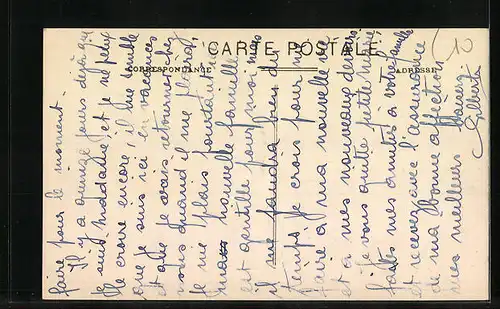 CARTE POSTALE
CORRESPONDANCE
ADRESSE
10
faire pour le moment.
Il y a quinze jours déjà que
suis madame, et je ne peux
le croire encore! il me semble
que je suis ici en vacances
et que je vais retourner chez
vous quand il me
Je me plais pourtant
nouvelle famille
est gentille pour moi mais
il me faudra bien du
temps je crois pour me
faire à ma nouvelle vie
et à mes nouveaux devoirs
je vous quitte petite mère
faites mes amitiés à votre famille
et recevez avec l'assurance
de ma bonne affection
mes meilleurs baisers
Gilberte